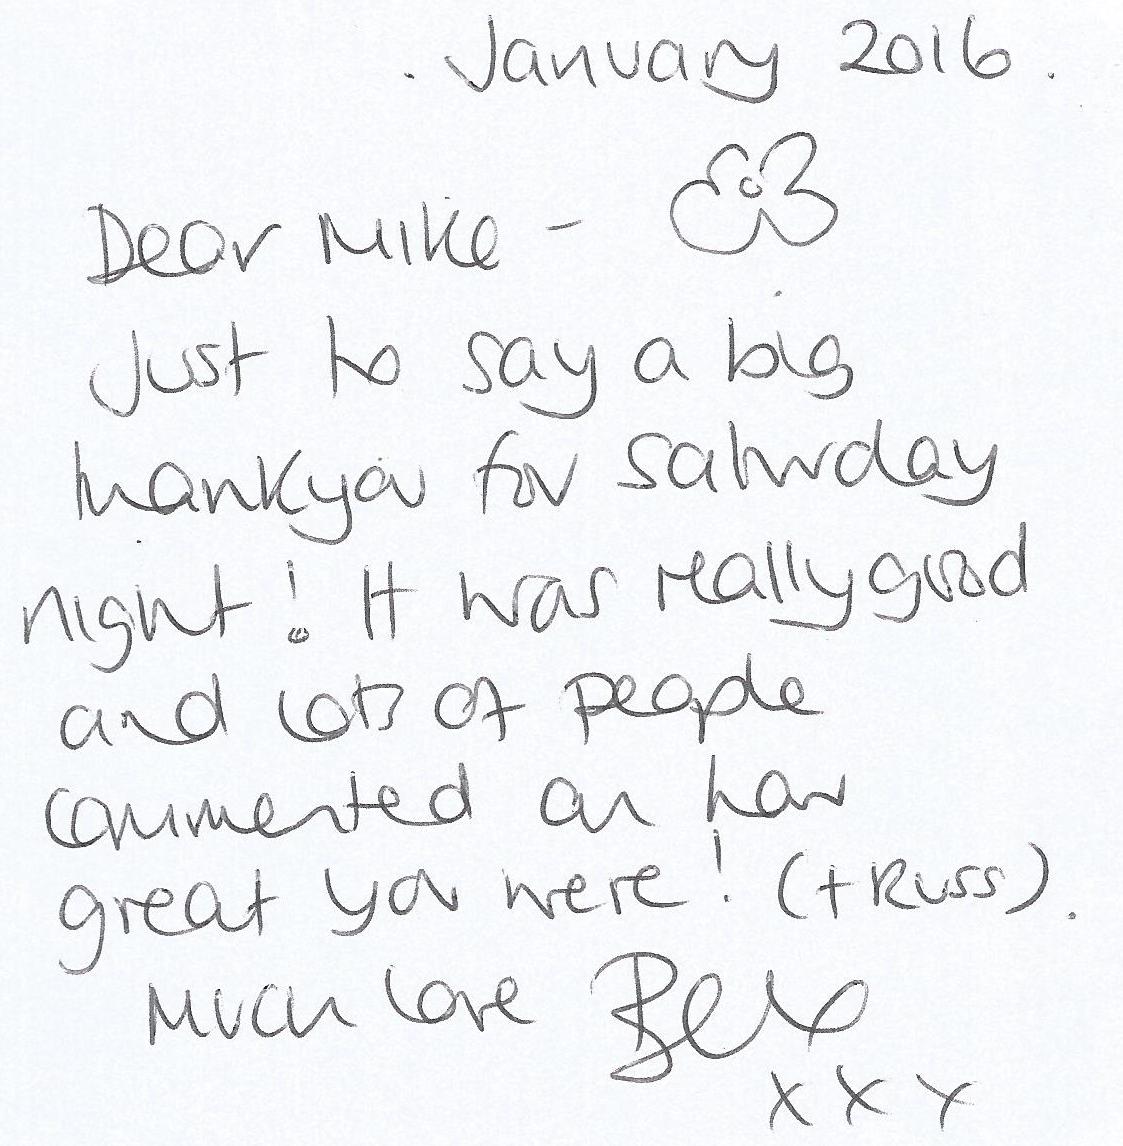 January 2016.
Dear Mike -
Just to say a big
thankyou for Saturday
night! It was really good
and lots of people
commented on how
great you were! (+ Russ).
Much love
xxx